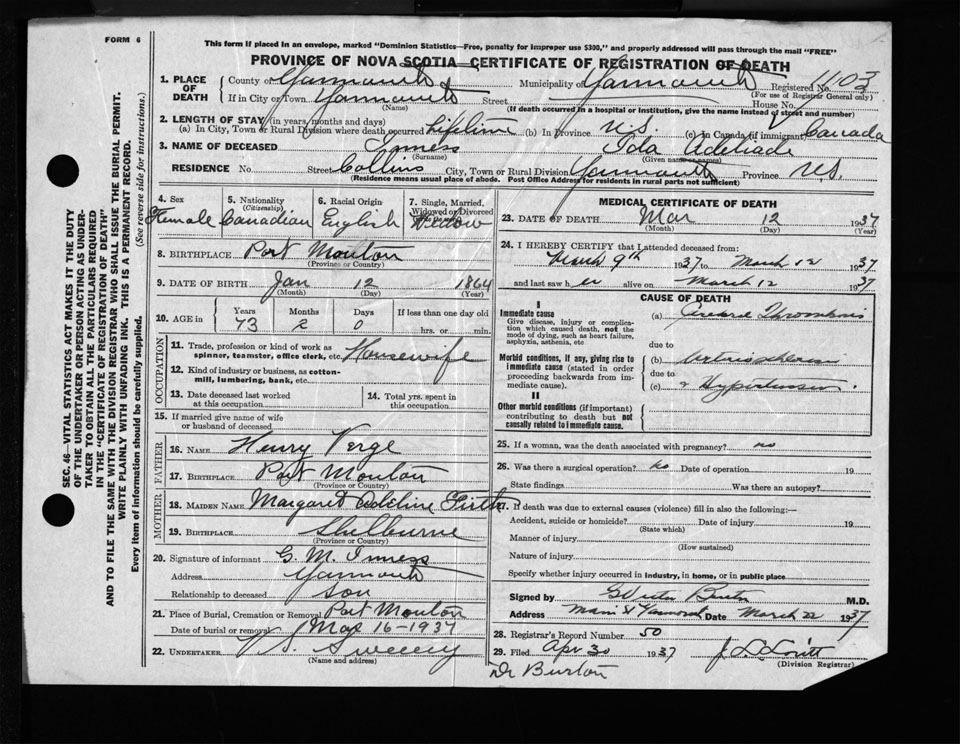 FORM 6
This form if placed in an envelope, marked "Dominion Statistics—Free, penalty for improper use $300," and properly addressed will pass through the mail "FREE"
PROVINCE OF NOVA SCOTIA—CERTIFICATE OF REGISTRATION OF DEATH
1. PLACE OF DEATH
County of Yarmouth Municipality of Yarmouth Registered No. 1103
(For use of Registrar General only)
If in City or Town Yarmouth Street House No.
(Name)
(If death occurred in a hospital or institution, give the name instead of street and number)
2. LENGTH OF STAY (in years, months and days)
(a) In City, Town or Rural Division where death occurred Lifetime (b) In Province N.S. (c) in Canada (if immigrant) Canada
3. NAME OF DECEASED Inness Ida Adeliade
(Surname) (Given name or names)
RESIDENCE No. Street Collins City, Town or Rural Division Yarmouth Province N.S.
(Residence means usual place of abode. Post Office Address for residents in rural parts not sufficient)
4. Sex Female
5. Nationality (Citizenship) Canadian
6. Racial Origin English
7. Single, Married, Widowed or Divorced Widow
8. BIRTHPLACE Port Mouton
(Province or Country)
9. DATE OF BIRTH Jan 12 1864
(Month) (Day) (Year)
10. AGE in Years 73 Months 2 Days 0 If less than one day old hrs. or min.
OCCUPATION
11. Trade, profession or kind of work as spinner, teamster, office clerk, etc. Housewife
12. Kind of industry or business, as cotton-mill, lumbering, bank, etc.
13. Date deceased last worked at this occupation
14. Total yrs. spent in this occupation
15. If married give name of wife or husband of deceased
FATHER
16. NAME Henry Verge
17. BIRTHPLACE Port Mouton
(Province or Country)
MOTHER
18. MAIDEN NAME Margaret Adeline Firth
19. BIRTHPLACE Shelburne
(Province or Country)
20. Signature of informant G. M. Inness
Address Yarmouth
Relationship to deceased Son
21. Place of Burial, Cremation or Removal Port Mouton
Date of burial or removal Mar 16-1937
22. UNDERTAKER V S. Sweeny
(Name and address)
MEDICAL CERTIFICATE OF DEATH
23. DATE OF DEATH Mar 12 1937
(Month) (Day) (Year)
24. I HEREBY CERTIFY that I attended deceased from:
March 9th 1937 to March 12 1937
and last saw her alive on March 12 1937
CAUSE OF DEATH
I
Immediate cause
Give disease, injury or complication which caused death, not the mode of dying, such as heart failure, asphyxia, asthenia, etc
(a) Cerebral Thrombosis
due to
Morbid conditions, if any, giving rise to immediate cause (stated in order proceeding backwards from immediate cause).
(b) Arteriosclerosis
due to
(c) & Hypertension.
II
Other morbid conditions (if important) contributing to death but not causally related to immediate cause.
25. If a woman, was the death associated with pregnancy? no
26. Was there a surgical operation? No Date of operation 19
State findings Was there an autopsy?
27. If death was due to external causes (violence) fill in also the following:—
Accident, suicide or homicide? Date of injury 19
(State which)
Manner of injury
(How sustained)
Nature of injury
Specify whether injury occurred in industry, in home, or in public place
Signed by Burton M.D.
Address Main St Yarmouth Date March 22 1937
28. Registrar's Record Number 50
29. Filed Apr 30 1937
(Division Registrar)
Dr Burton
SEC. 46—VITAL STATISTICS ACT MAKES IT THE DUTY
OF THE UNDERTAKER OR PERSON ACTING AS UNDERTAKER
TO OBTAIN ALL THE PARTICULARS REQUIRED
IN THE "CERTIFICATE OF REGISTRATION OF DEATH"
AND TO FILE THE SAME WITH THE DIVISION REGISTRAR WHO SHALL ISSUE THE BURIAL PERMIT.
WRITE PLAINLY WITH UNFADING INK. THIS IS A PERMANENT RECORD.
Every item of information should be carefully supplied. (See reverse side for instructions.)